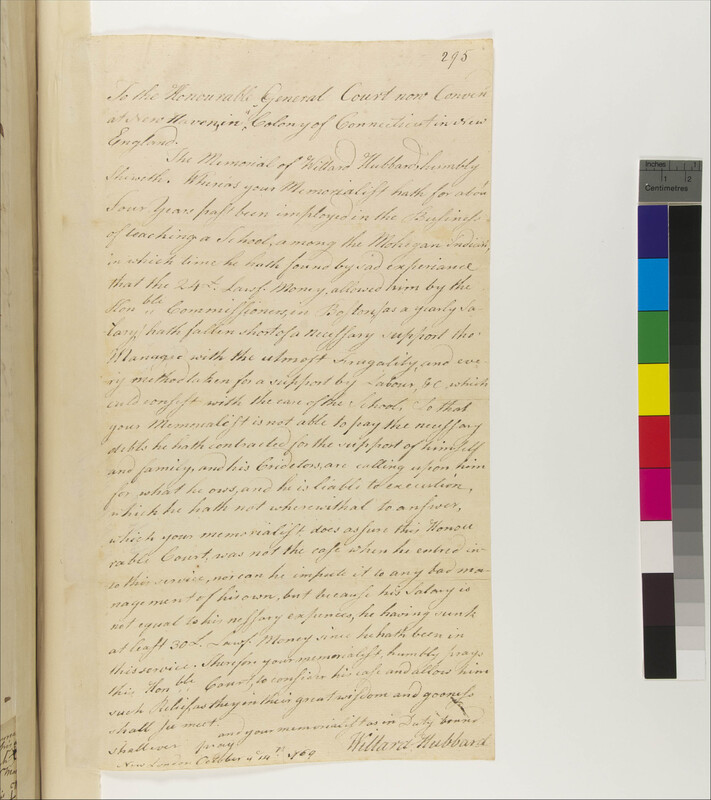 295
To the Honourable General Court now Conven
at New Haven, in ye Colony of Connecticut in New
England.
The Memorial of Willard Hubbard humbly
Sheweth. Wheras your Memorialist hath for abou
Four Years past been imployed in the Business
of teaching a School, among the Mohegan Indians,
in which time he hath found by sad experiance
that the 24£. Lawf. Money, allowed him by the
Honble Commissioners, in Boston, as a yearly Sa-
lary, hath fallen short of a necessary support tho
Managed with the utmost Frugality, and eve-
ry method taken for a support by Labour, &c which
could consist with the care of the School, So that
your Memorialist is not able to pay the necessary
debts he hath contracted for the support of himself
and family, and his Creditors, are calling upon him
for what he ows, and he is liable to execution,
which he hath not wherewithal to answer,
which your memorialist does assure this Honou
rable Court, was not the case when he entred in-
to this service, nor can he impute it to any bad ma-
nagement of his own, but because his Salary is
not equal to his nessary expences, he having sunk
at least 30£. Lawf. Money since he hath been in
this service. Therefore your memorialist, humbly prays
this Honble Court, to consider his case and allow him
such Relief as they in their great wisdom and goodness
shall see meet and your memorialist as in Duty bound
shall ever pray
Willard Hubbard
New London October ye 14th 1769
Inches
1
2
Centimetres